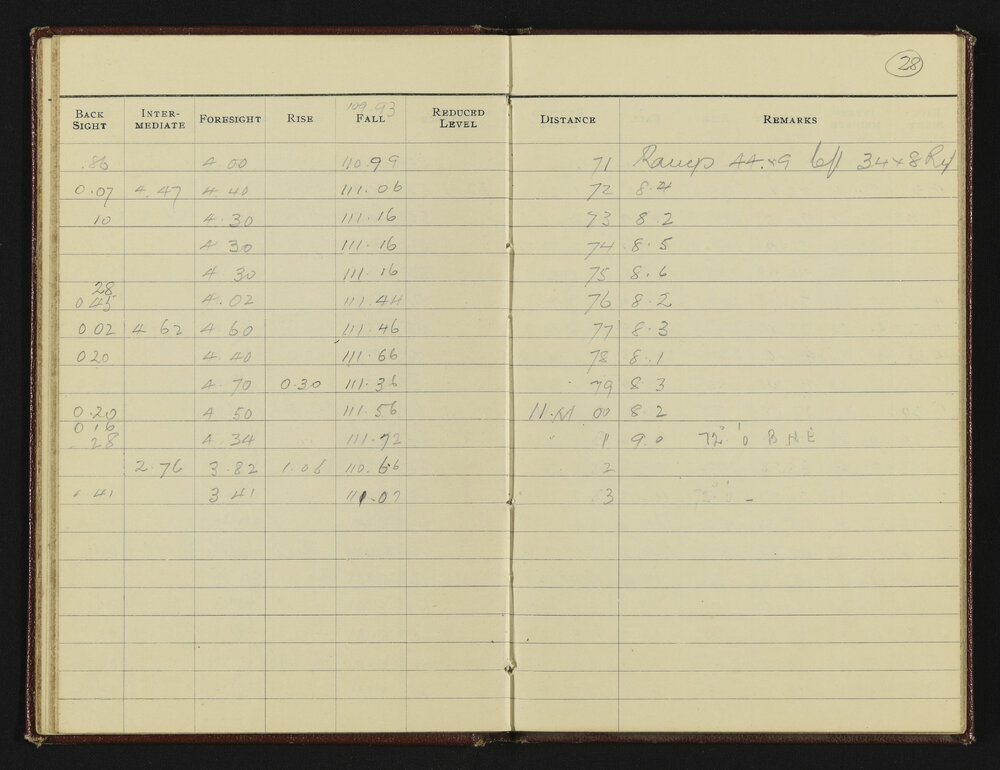 28
109.93
BACK SIGHT INTER-MEDIATE FORESIGHT RISE FALL REDUCED LEVEL DISTANCE REMARKS
.86 4 00 110.99 71 Ramp 44.×9 left 34×8
0.07 4.47 4 40 111.06 72 8.4
10 4.30 111.16 73 8.2
4 30 111.16 74 8.5
4 30 111.16 75 8.6
28
0 45 4.02 111.44 76 8.2
0 02 4 62 4 60 111.46 77 8.3
0 20 4 40 111.66 78 8.1
4.70 0.30 111.36 79 8.3
0.20 4 50 111.56 11.M 00 8.2
0 16
28 4.34 111.72 1 9.0 B N E
2.76 3.82 1.06 110.66 2
41 3 41 111.07 3